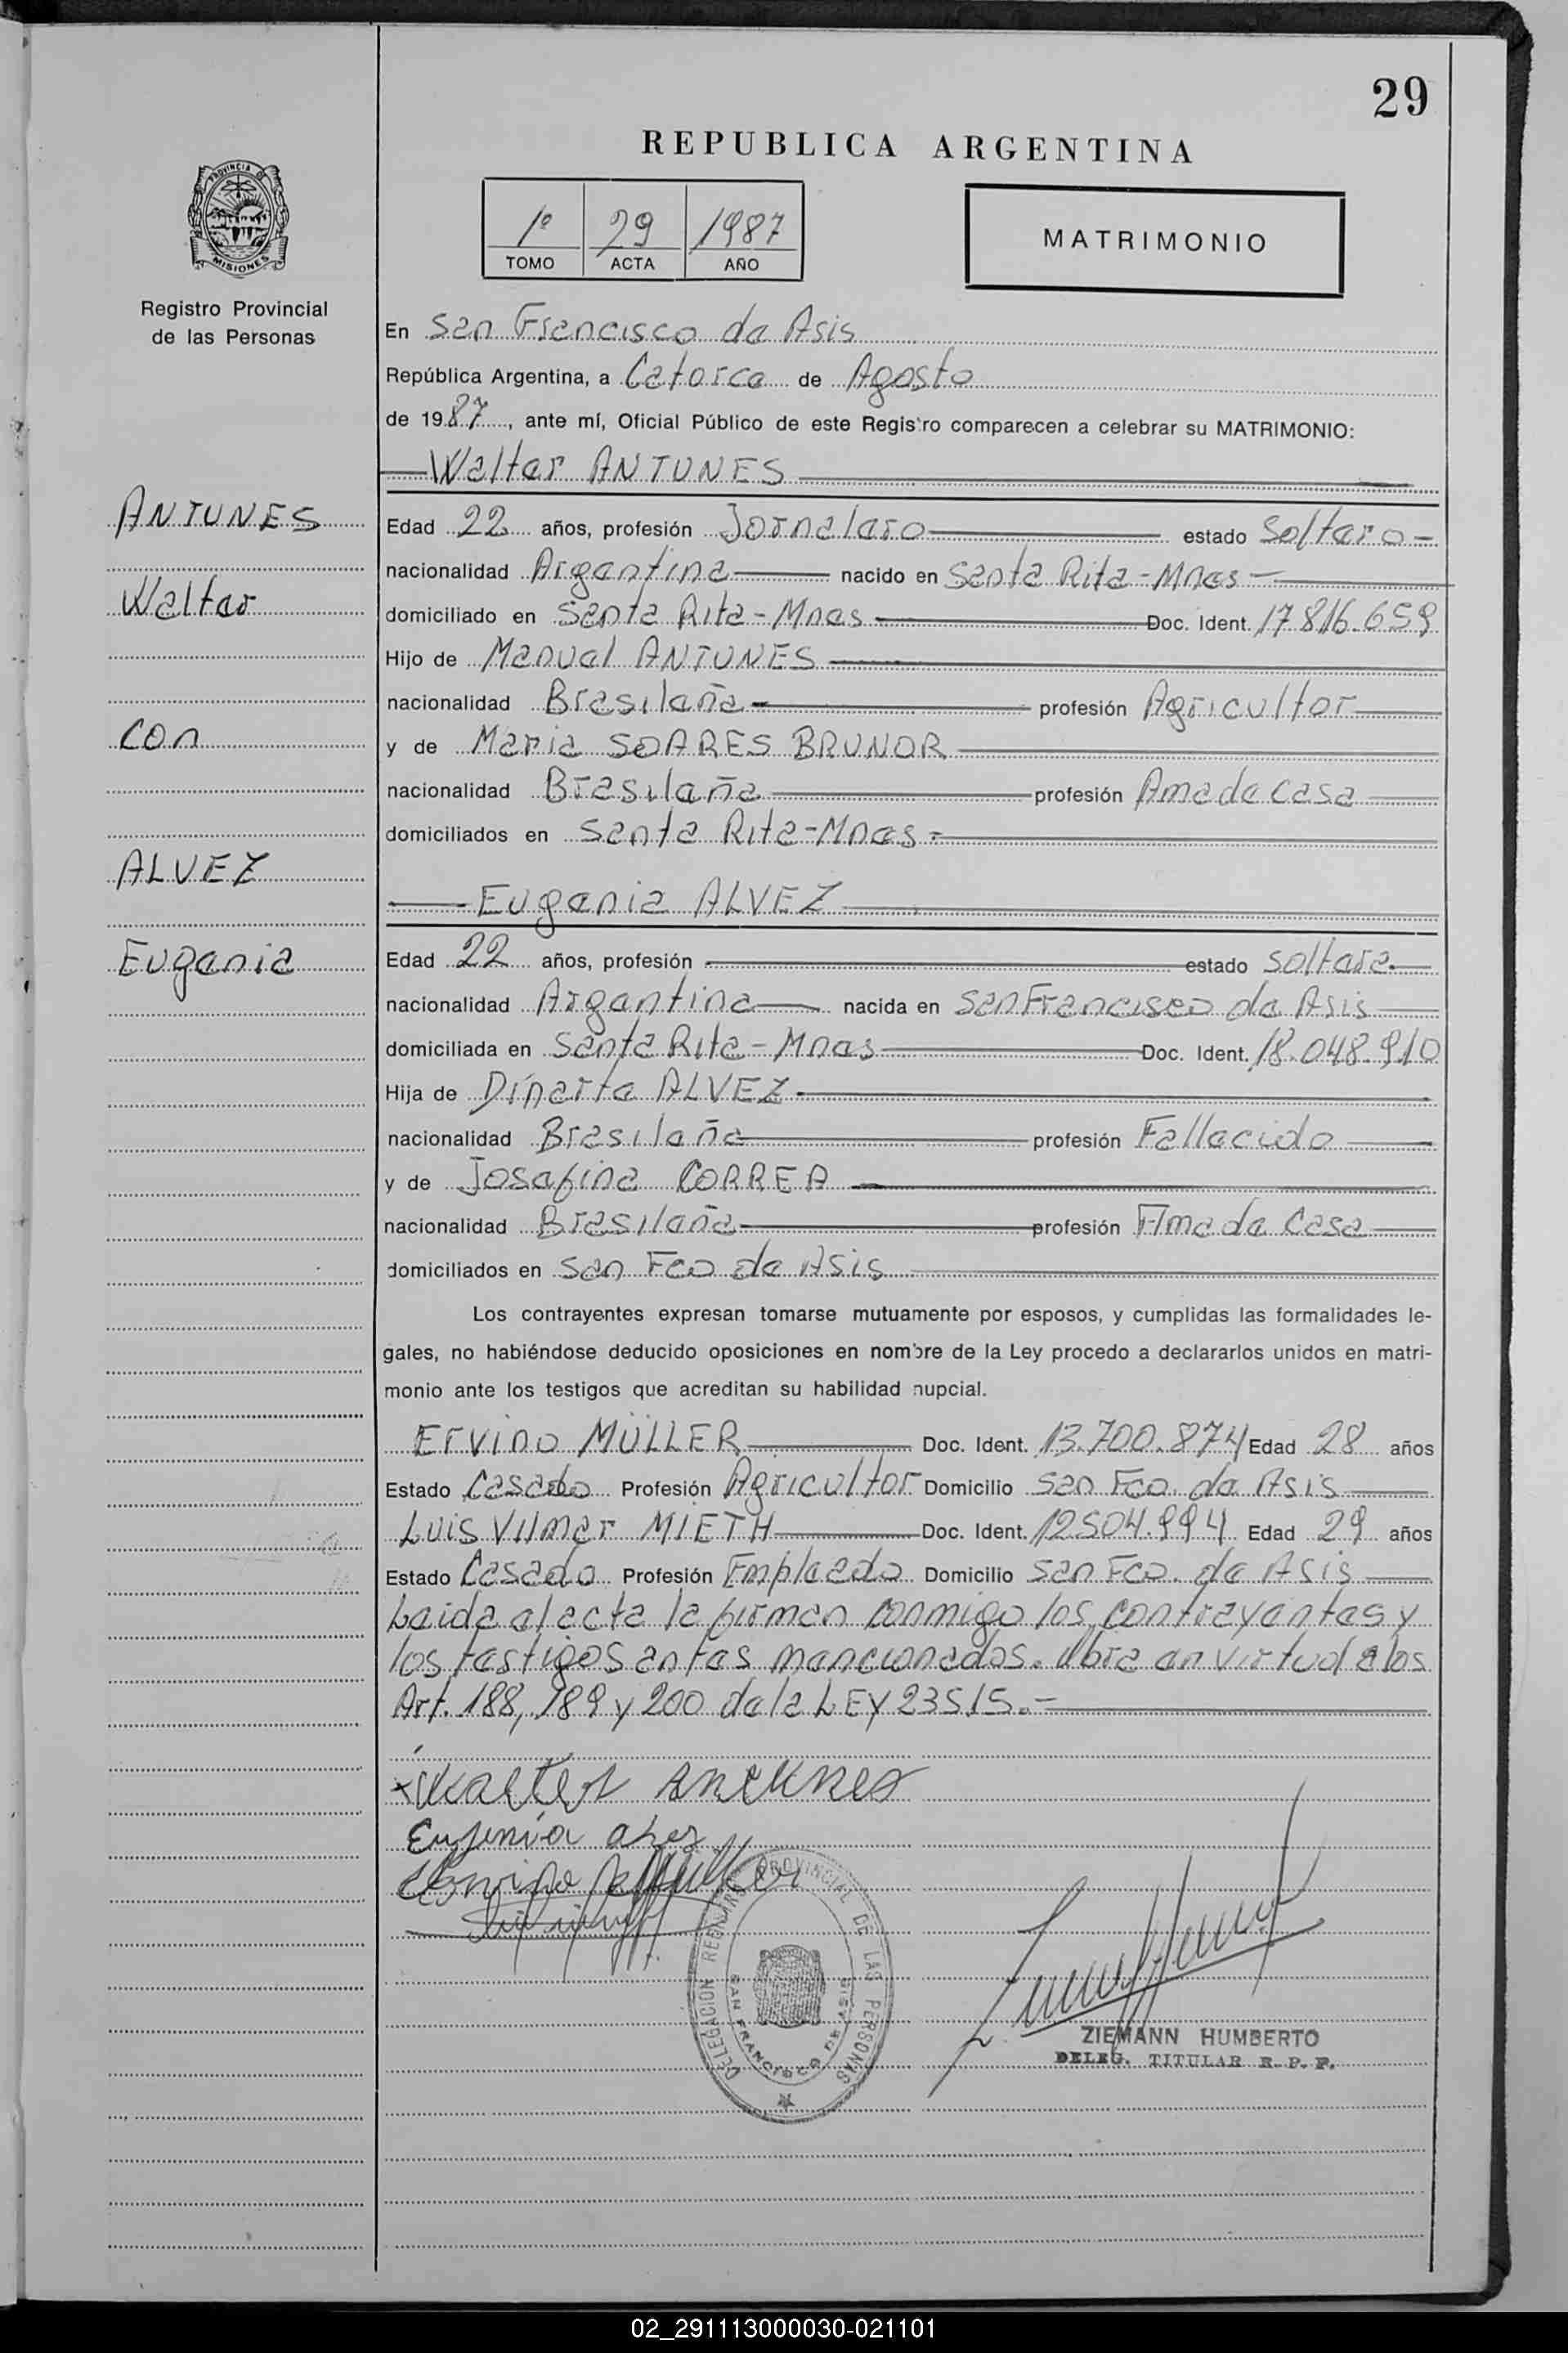 29
REPUBLICA ARGENTINA
PROVINCIA DE
MISIONES
Registro Provincial
de las Personas
1º 29 1987
TOMO ACTA AÑO
MATRIMONIO
En San Francisco de Asis
República Argentina, a Catorce de Agosto
de 1987, ante mí, Oficial Público de este Registro comparecen a celebrar su MATRIMONIO:
Walter ANTUNES
ANTUNES
Walter
con
ALVEZ
Eugenia
Edad 22 años, profesión Jornalero estado Soltero
nacionalidad Argentina nacido en Santa Rita - Mnes
domiciliado en Santa Rita - Mnes Doc. Ident. 17.816.659
Hijo de Manuel ANTUNES
nacionalidad Brasileña profesión Agricultor
y de Maria SOARES BRUNOR
nacionalidad Brasileña profesión Ama de casa
domiciliados en Santa Rita - Mnes
Eugenia ALVEZ
Edad 22 años, profesión estado soltera
nacionalidad Argentina nacida en San Francisco de Asis
domiciliada en Santa Rita - Mnes Doc. Ident. 18.048.910
Hija de Dinarte ALVEZ
nacionalidad Brasileña profesión Fallecido
y de Josefina CORREA
nacionalidad Brasileña profesión Ama de Casa
domiciliados en San Fco de Asis
Los contrayentes expresan tomarse mutuamente por esposos, y cumplidas las formalidades le-
gales, no habiéndose deducido oposiciones en nombre de la Ley procedo a declararlos unidos en matri-
monio ante los testigos que acreditan su habilidad nupcial.
Ervino MÜLLER Doc. Ident. 13.700.874 Edad 28 años
Estado Casado Profesión Agricultor Domicilio San Fco. de Asis
Luis Vilmar MIETH Doc. Ident. 12504.994 Edad 29 años
Estado Casado Profesión Empleado Domicilio San Fco. de Asis
Leida el acta la firman conmigo los contrayentes y
los testigos antes mencionados. Obra en virtud a los
Art. 188, 189 y 200 de la LEY 23515.-
x Walter Antunes
Eugenia alvez
DELEGACION REGISTRO PROVINCIAL DE LAS PERSONAS
SAN FRANCISCO DE ASIS
ZIEMANN HUMBERTO
DELEG. TITULAR R. P. P.
02_291113000030-021101